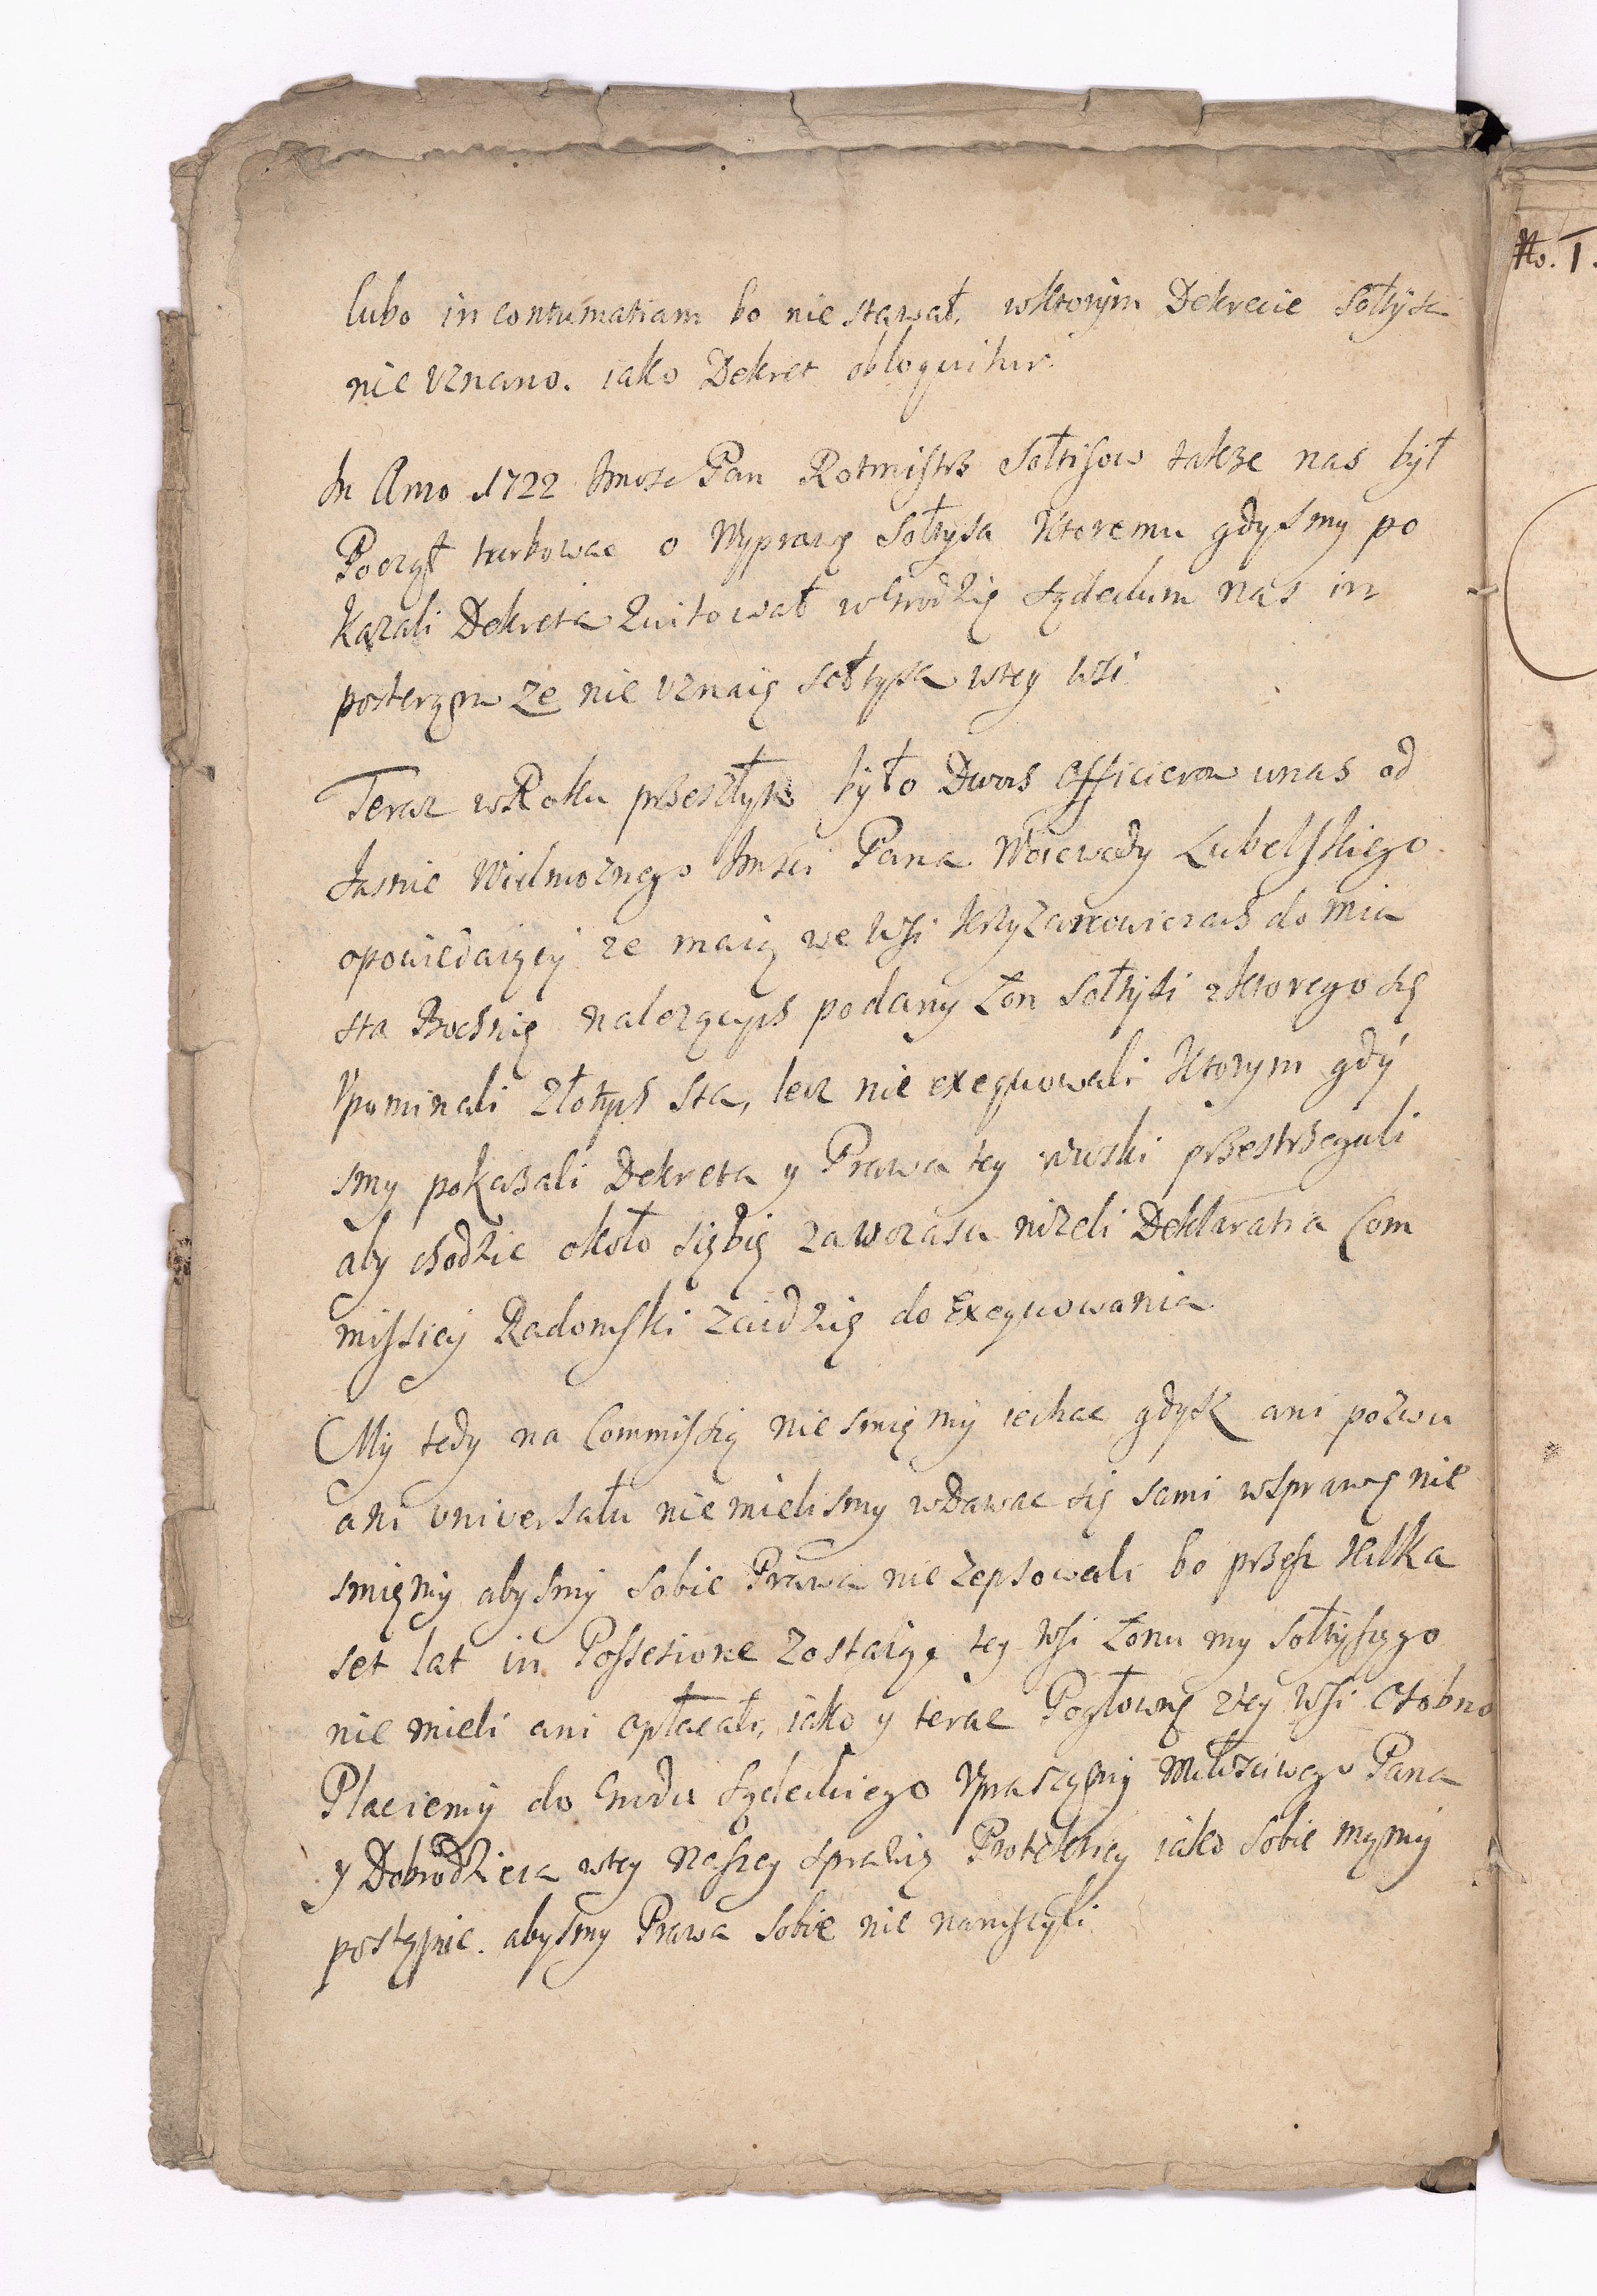 lubo in contumatiam bo nie stawał, wktorym Dekrecie sołtysa
nie uznano. iako Dekret obloquitur.
In Anno 1722 Imść Pan Rotmistrz Sołtisow takze nas był
Począł turbowac o Wyprawę Sołtysa Ktoremu gdysmy po
kazali Dekreta Kwitował wGrodzie Sądeckim nas in
posterum ze nie uznaię sołtysa wtey wsi
Teraz wRoku przeszłym było Dwoch Officierow unas od
Jasnie Wielmoznego Imści Pana Woiewody Lubelskiego
opowiedaiący ze maią we Wsi Krzyzanowicach do mia
sta Bochnie nalezących podany Łon Sołtysi zktorego się
Upominali złotych sta, lecz nie exequowali Ktorym gdy
smy pokazali Dekreta y Prawa tey wioski przestrzegali
aby chodzic około siębię zawczasu nizeli Deklaratia Com
missiey Radomski zaidzię do Exequowania
My tedy na Commissię niesmięmy iechac gdysz ani pozwu
ani universału nie mielismy wdawac się sami wsprawę nie
smięmy abysmy sobie Prawa nie zepsowali bo przesz kilka
set lat in Possesione zostaiąc tey Wsi Łonu my sołtyszego
nie mieli ani opłacali, iako y teraz Pogłownę ztey Wsi osobno
Placiemy do Grodu Sądeckiego Upraszamy Miłościwego Pana
y Dobrodzieia wtey naszey sprawię Protekcyey iako sobie mamy
postąpic. abysmy Prawa sobie nie naruszyli
No. 1.